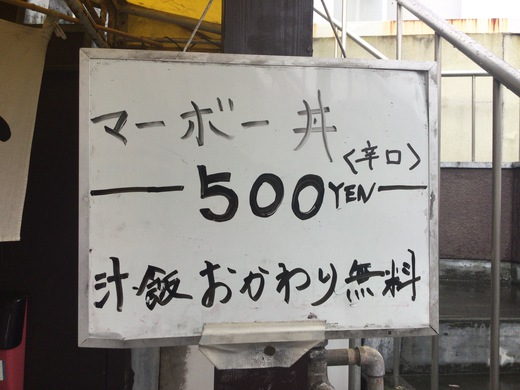 マーボー丼
<辛口>
500YEN
汁・飯おかわり無料